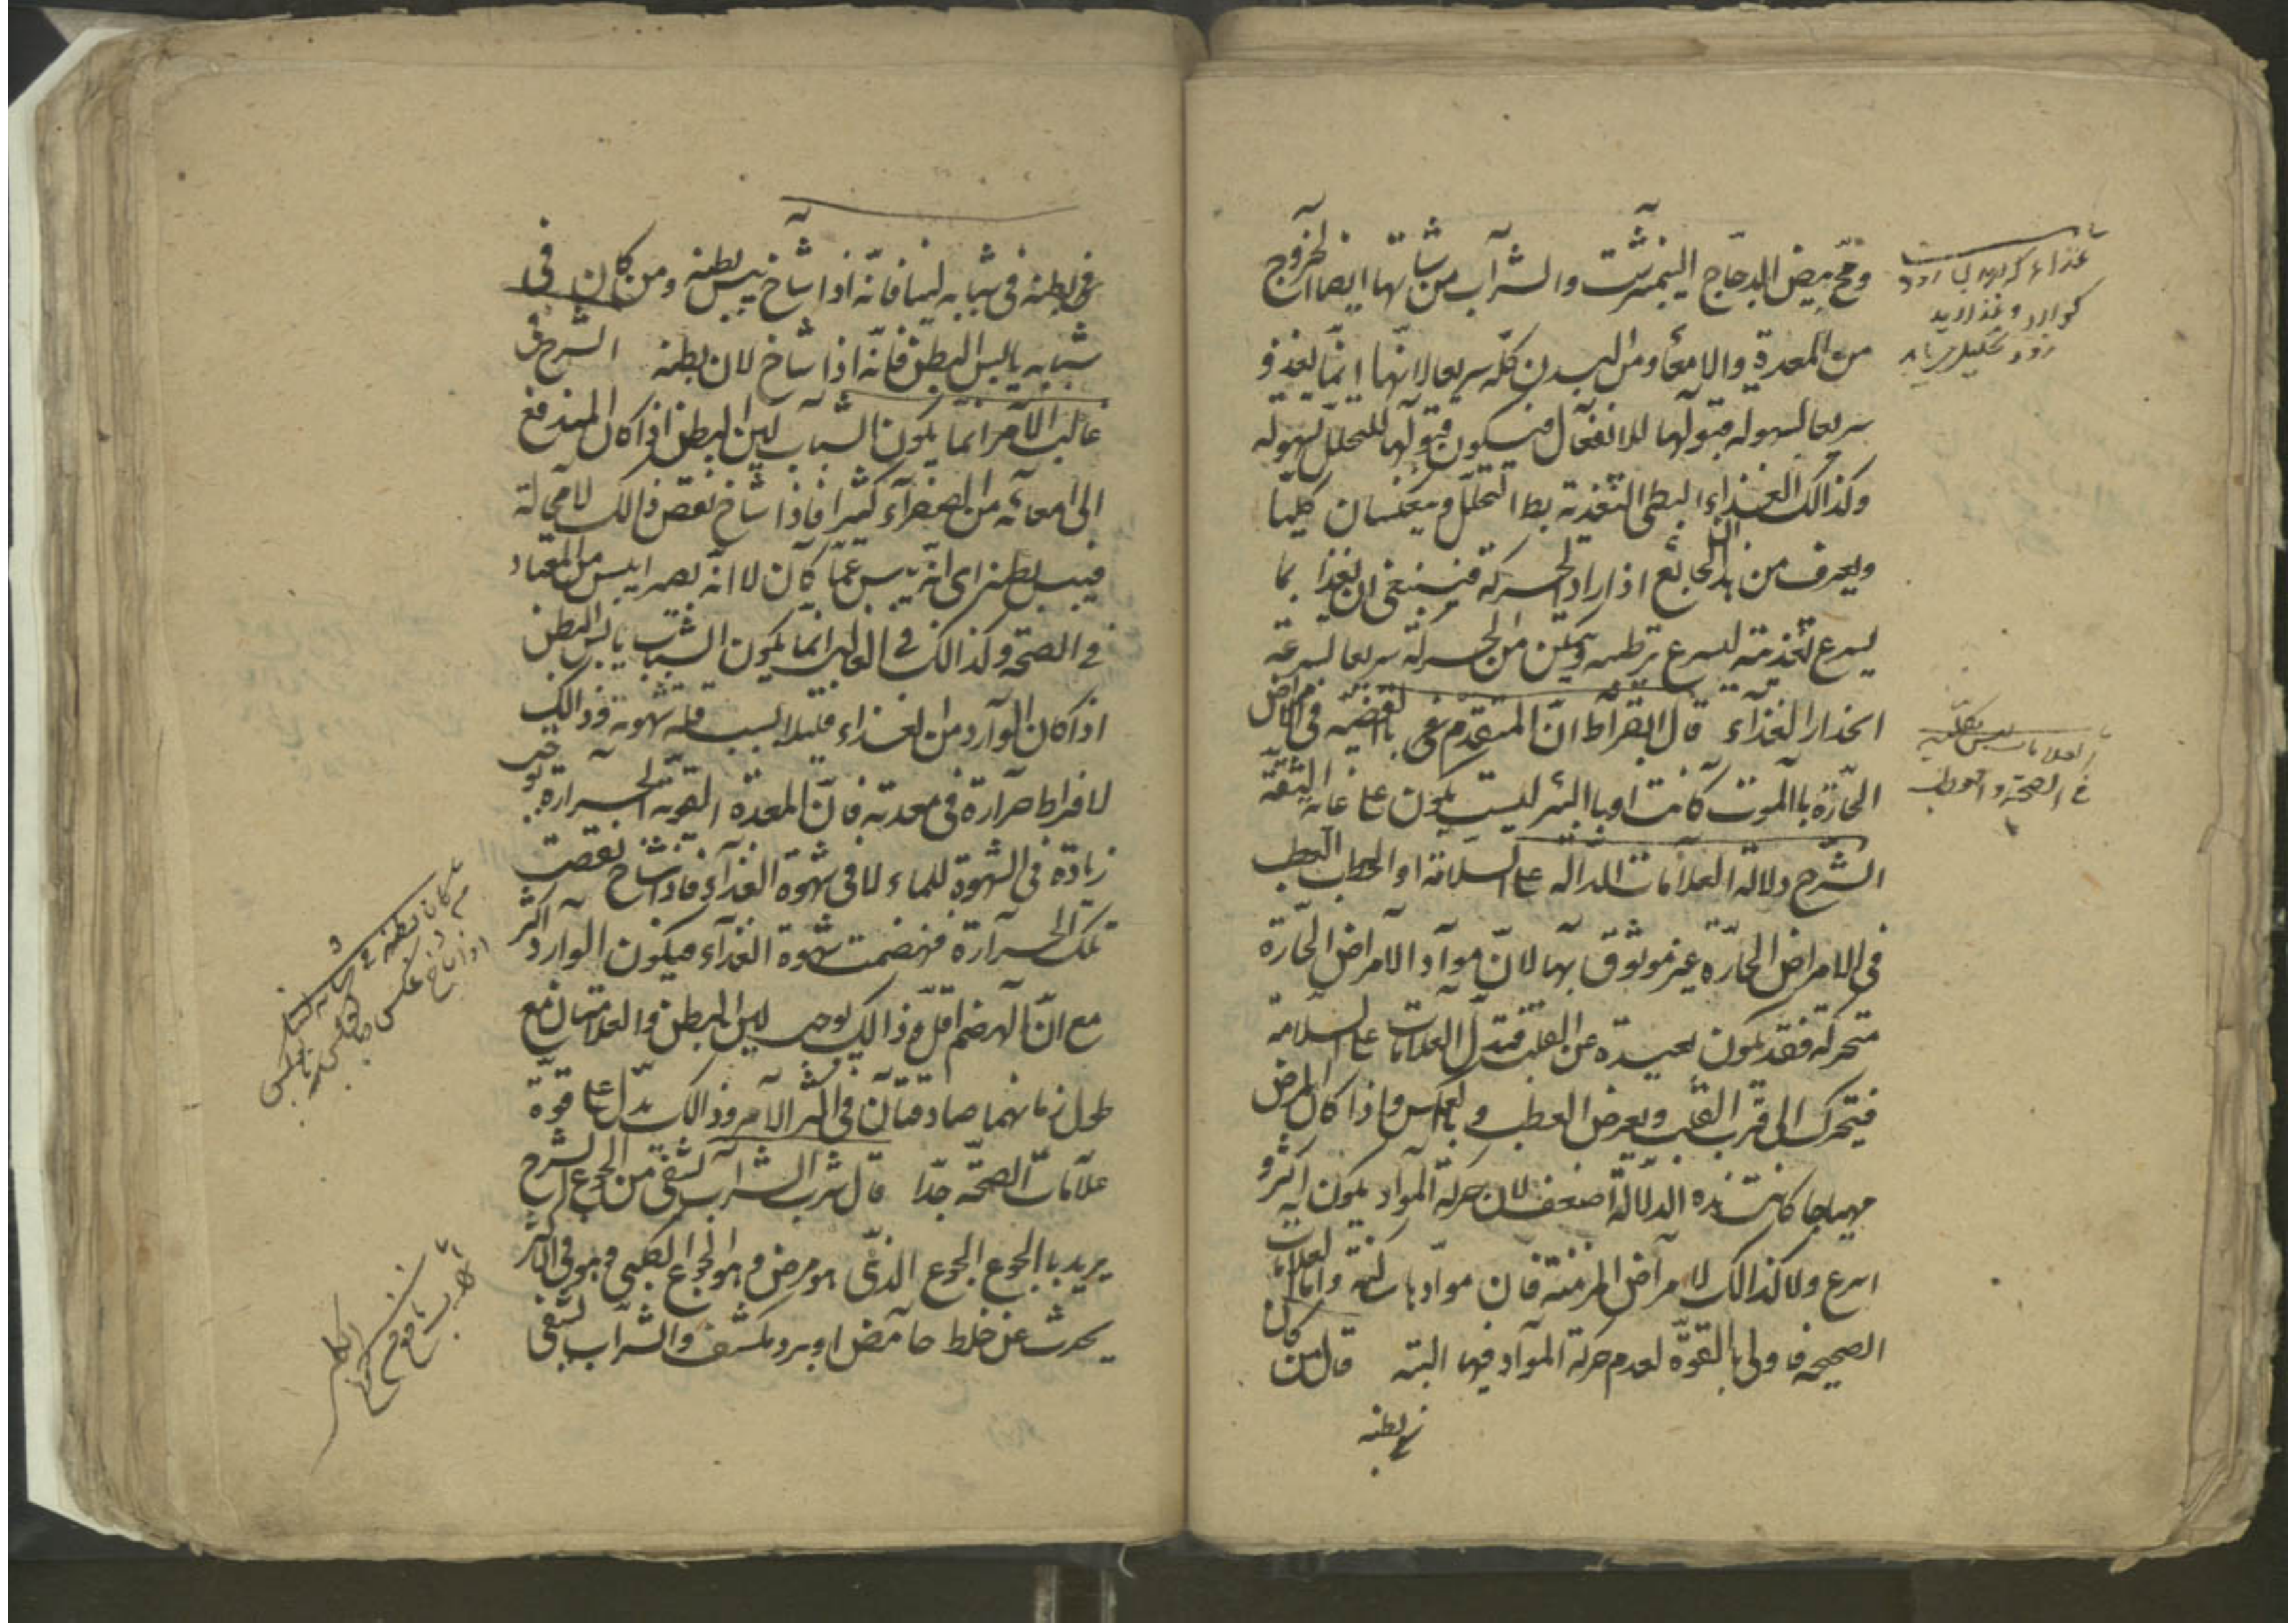 ومح بيض الدجاج النيمرشت والشراب من شانها ايضا الخروج
من المعدة والامعا ومن البدن كله سريعا لانها انما يغذو
سريعا لسهولة قبولها للانفعال فيكون قبولها للتحلل لسهولة
وكذالك الغذاء البطي التغذية بطا التحلل وينعكسان كليا
ويعرف من هذا ان الجائع اذا اراد الحركة فينبغي ان يغذا بما
يسرع تغذيته ليسرع ويمكن من الحركة سريعا لسرعة
انحدار الغذاء قال ابقراط ان المتقدم في القضية في الامراض
الحادة بالموت كانت او بالبرء ليست يكون على غاية الثقة
الشرح دلالة العلامات الدالة على السلامة او العطب
في الامراض الحارة غير موثوق بها لان مواد الامراض الحارة
متحركة فقد يكون بعيدة عن القلب فتدل العلامات على السلامة
فيتحرك الى قرب القلب ويعرض العطب وبالعكس واذا كان المرض
مهياجا كانت هذه الدلالة اضعف لان حركة المواد يكون به اكثر و
اسرع ولا كذالك الامراض المزمنة فان موادها ساكنة واما العلامات
الصحيحة فاولى بالقوة لعدم حركة المواد فيها البتة قال من كان
بطنه
غذاء كه
زود تحليل
العلامات ليس
في الصحة والعطب
في بطنه في شبابه لينا فانه اذا شاخ يبس بطنه ومن كان في
شبابه يابس البطن فانه اذا شاخ لان بطنه الشرح في
غالب الامر انما يكون الشباب لين البطن اذا كان المندفع
الى امعائه من الصفراء كثيرا فاذا شاخ نقص ذالك لا محالة
فيبس بطنه اى انه يبس عما كان لا انه يصير ايبس من المعتاد
في الصحة وكذالك في الغالب انما يكون الشباب يابس البطن
اذا كان الوارد من الغذاء قليلا بسبب قلة شهوته وذالك
لافراط حرارة في معدته فان المعدة القوية الحرارة توجب
زيادة في الشهوة للماء لا في شهوة الغذاء فاذا شاخ نقصت
تلك الحرارة فنهضت شهوة الغذاء فيكون الوارد اكثر
مع ان الهضم اقل وذالك يوجب لين البطن والعلامتان مع
طول زمانهما صادقتان في اكثر الامر وذالك يدل على قوة
علامات الصحة جدا قال شرب الشراب يشفى من الجوع الشرح
يريد بالجوع الجوع الذى هو مرض وهو الجوع الكلبي وهو في الاكثر
يحدث عن خلط حامض او برد مكثف والشراب يشفى